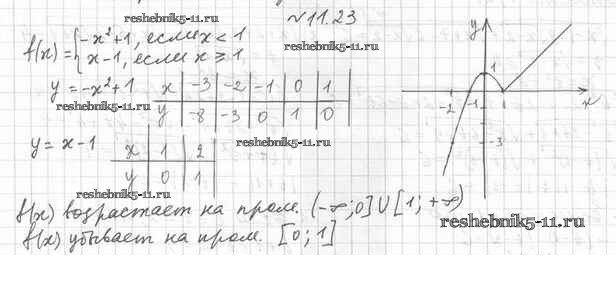 reshebnik5-11.ru
№11.23
reshebnik5-11.ru
f(x) = { -x²+1, если x < 1
x-1, если x ⩾ 1
y = -x²+1
x | -3 | -2 | -1 | 0 | 1
y | -8 | -3 | 0 | 1 | 0
reshebnik5-11.ru
y = x-1
x | 1 | 2
y | 0 | 1
reshebnik5-11.ru
reshebnik5-11.ru
y
1
-2 -1 1 x
-3
f(x) возрастает на пром. (-∞; 0] U [1; +∞)
f(x) убывает на пром. [0; 1]
reshebnik5-11.ru